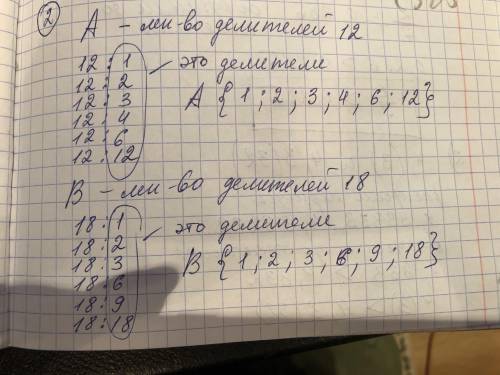 ② A – мн-во делителей 12
12 : 1 это делители
12 : 2
12 : 3 A {1; 2; 3; 4; 6; 12}
12 : 4
12 : 6
12 : 12
B – мн-во делителей 18
18 : 1 это делители
18 : 2
18 : 3 B {1; 2; 3; 6; 9; 18}
18 : 6
18 : 9
18 : 18